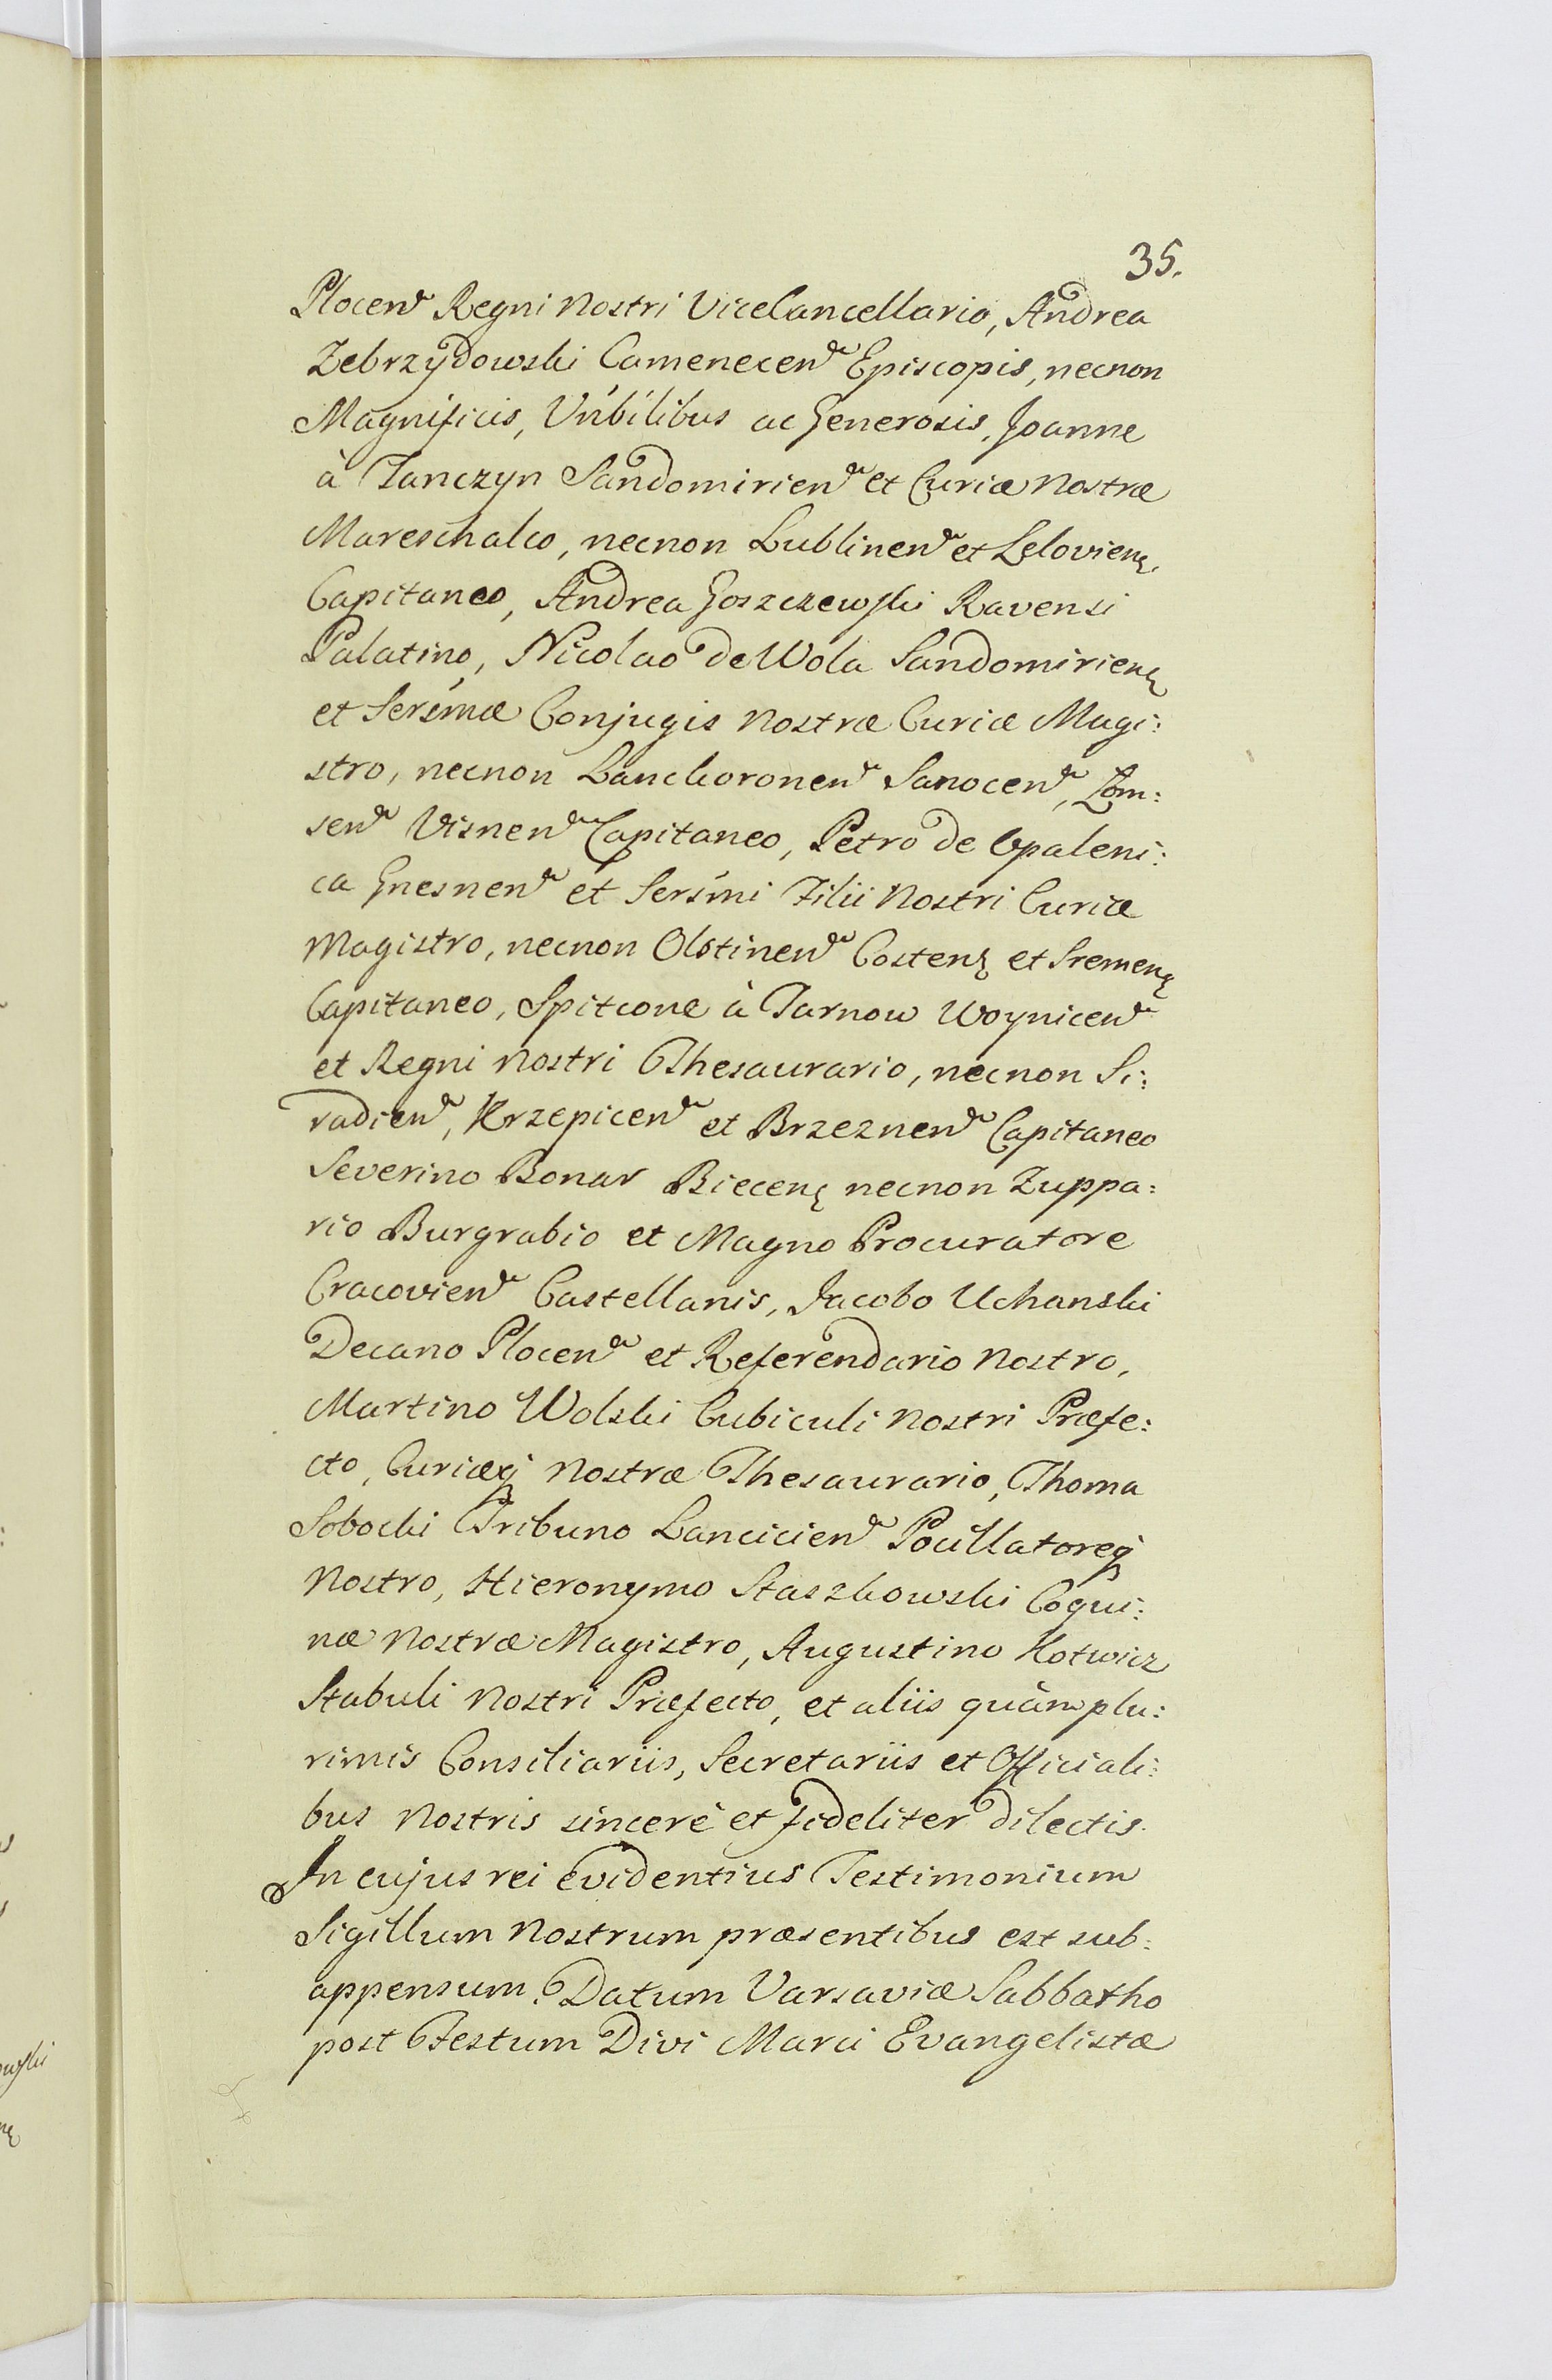 35.
Plocen̄ Regni Nostri ViceCancellario, Andrea
Zebrzÿdowski Camenecen̄ Episcopis, necnon
Magnificis, Vńbilibus ac Generosis, Joanne
à Tanczyn Sandomirien̄ et Curiæ Nostræ
Mareschalco, necnon Lublinen̄ et Leloviens.
Capitaneo, Andrea Goszczewski Ravensi
Palatino, Nicolao de Wola Sandomiriens
et Serśmæ Conjugis Nostræ Curiæ Magi:
stro, necnon Lanckoronen̄ Sanocen̄, Łom:
sen̄ Visnen̄ Capitaneo, Petro de Opaleni:
ca Gnesnen̄ et Serśmi Filii Nostri Curiæ
Magistro, necnon Olstinen̄ Costens et Sremens
Capitaneo, Spitcone à Tarnow Woynicen̄
et Regni Nostri Thesaurario, necnon Si:
radien̄, Krzepicen̄ et Brzeznen̄ Capitaneo
Severino Bonar Biecens necnon Zuppa:
rio Burgrabio et Magno Procuratore
Cracovien̄ Castellanis, Jacobo Uchanski
Decano Plocen̄ et Referendario Nostro,
Martino Wolski Cubiculi Nostri Præfe:
cto, Curiæq́ Nostræ Thesaurario, Thoma
Sobocki Tribuno Lancicien̄ Pocillatoreq́
Nostro, Hieronymo Staszkowski Coqui:
næ Nostræ Magistro, Augustino Kotwicz
Stabuli Nostri Præfecto, et aliis quàm plu:
rimis Consiliariis, Secretariis et Officiali:
bus Nostris sincerè et fideliter dilectis.
In cujus rei evidentius Testimonium
Sigillum Nostrum præsentibus est sub:
appensum. Datum Varsaviæ Sabbatho
post Festum Divi Marci Evangelistæ